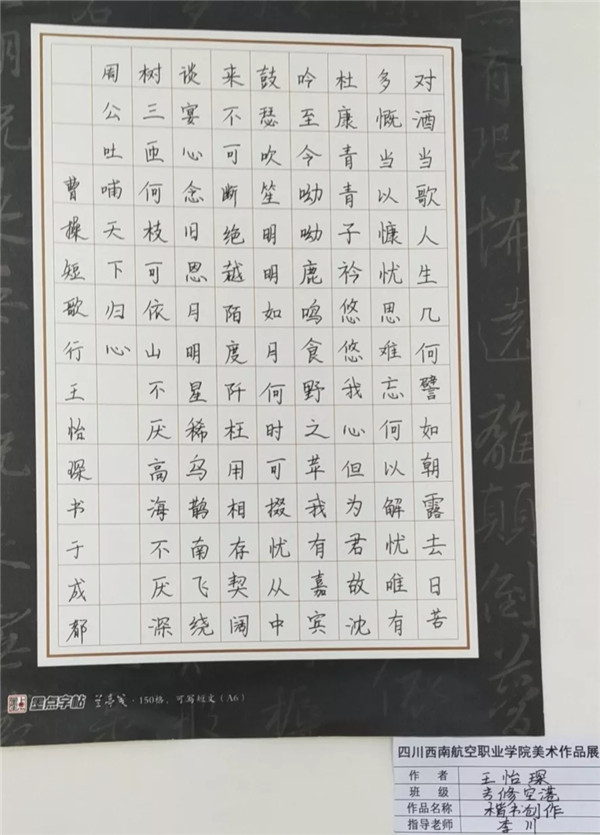 对酒当歌人生几何譬如朝露去日苦
多慨当以慷忧思难忘何以解忧唯有
杜康青青子衿悠悠我心但为君故沈
吟至今呦呦鹿鸣食野之苹我有嘉宾
鼓瑟吹笙明明如月何时可掇忧从中
来不可断绝越陌度阡枉用相存契阔
谈宴心念旧恩月明星稀乌鹊南飞绕
树三匝何枝可依山不厌高海不厌深
周公吐哺天下归心
曹操短歌行王怡琛书于成都
無有恐怖遠離顛倒夢
墨点字帖 兰亭笺·150格，可写短文（A6）
四川西南航空职业学院美术作品展
作者 王怡琛
班级 专修空港
作品名称 楷书创作
指导老师 李川